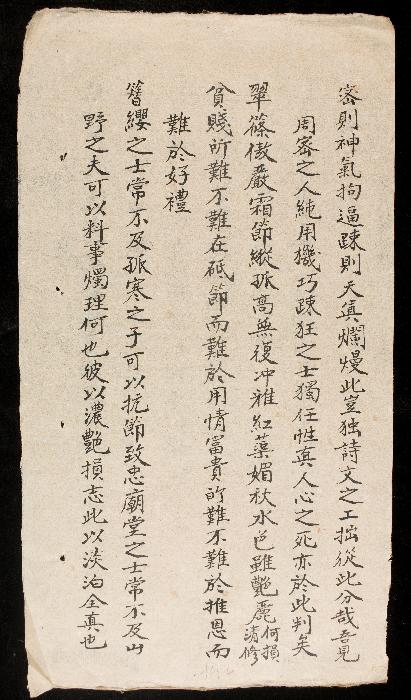 密則神氣拘逼疎則天真爛熳此豈独詩文之工拙從此分哉吾見
周密之人純用機巧疎狂之士獨任性真人心之死亦於此判矣
翠篠傲嚴霜節縱孤高無復冲雅紅蕖媚秋水色雖艷麗何損清修
貧賤所難不難在砥節而難於用情富貴所難不難於推恩而
難於好禮
簪纓之士常不及孤寒之子可以抗節致忠廟堂之士常不及山
野之夫可以料事燭理何也彼以濃艷損志此以淡泊全真也